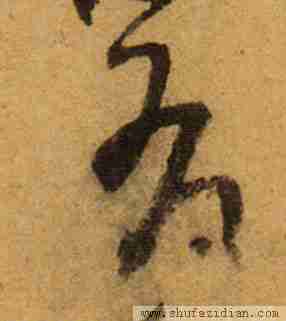 為
www.shufazidian.com